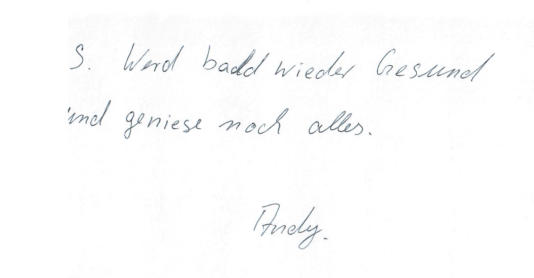 S. Werd badd wieder Gesund
und geniese noch alles.
Andy.